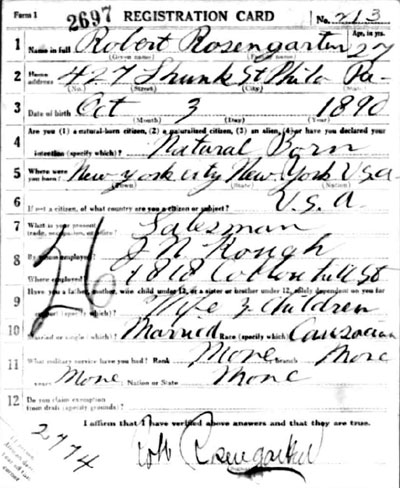 Form 1 2697 REGISTRATION CARD No. 213
1 Name in full Robert Rosengarten Age, in yrs. 27
(Given name) (Family name)
2 Home address 427 Shunk St Phila Pa-
(No.) (Street) (City) (State)
3 Date of birth Oct 3 1890
(Month) (Day) (Year)
Are you (1) a natural-born citizen, (2) a naturalized citizen, (3) an alien, (4) or have you declared your
4 intention (specify which)? Natural Born
5 Where were you born? New York City New York USA
(Town) (State) (Nation)
6 If not a citizen, of what country are you a citizen or subject? U.S.A
7 What is your present trade, occupation, or office? Salesman
8 By whom employed? J.N.
Where employed? St
9 Have you a father, mother, wife, child under 12, or a sister or brother under 12, solely dependent on you for
(specify which)? Wife & children
10 Married or single (which)? Married Race (specify which)? Causacian
11 What military service have you had? Rank None branch None
years None Nation or State None
12 Do you claim exemption from draft (specify grounds)?
I affirm that I have verified above answers and that they are true.
2774
Robt Rosengarten